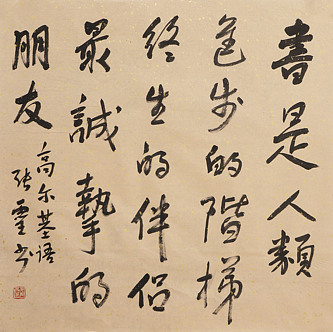 書是人類
進步的階梯
終生的伴侣
最誠摯的
朋友
高尔基语
张霊书